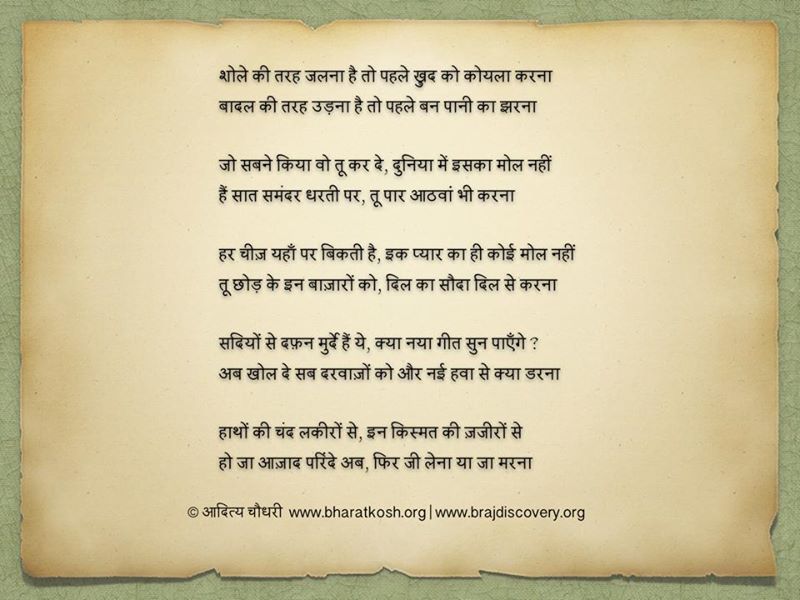 शोले की तरह जलना है तो पहले ख़ुद को कोयला करना
बादल की तरह उड़ना है तो पहले बन पानी का झरना
जो सबने किया वो तू कर दे, दुनिया में इसका मोल नहीं
हैं सात समंदर धरती पर, तू पार आठवां भी करना
हर चीज़ यहाँ पर बिकती है, इक प्यार का ही कोई मोल नहीं
तू छोड़ के इन बाज़ारों को, दिल का सौदा दिल से करना
सदियों से दफ़न मुर्दे हैं ये, क्या नया गीत सुन पाएँगे ?
अब खोल दे सब दरवाज़ों को और नई हवा से क्या डरना
हाथों की चंद लकीरों से, इन किस्मत की ज़जीरों से
हो जा आज़ाद परिंदे अब, फिर जी लेना या जा मरना
© आदित्य चौधरी www.bharatkosh.org|www.brajdiscovery.org